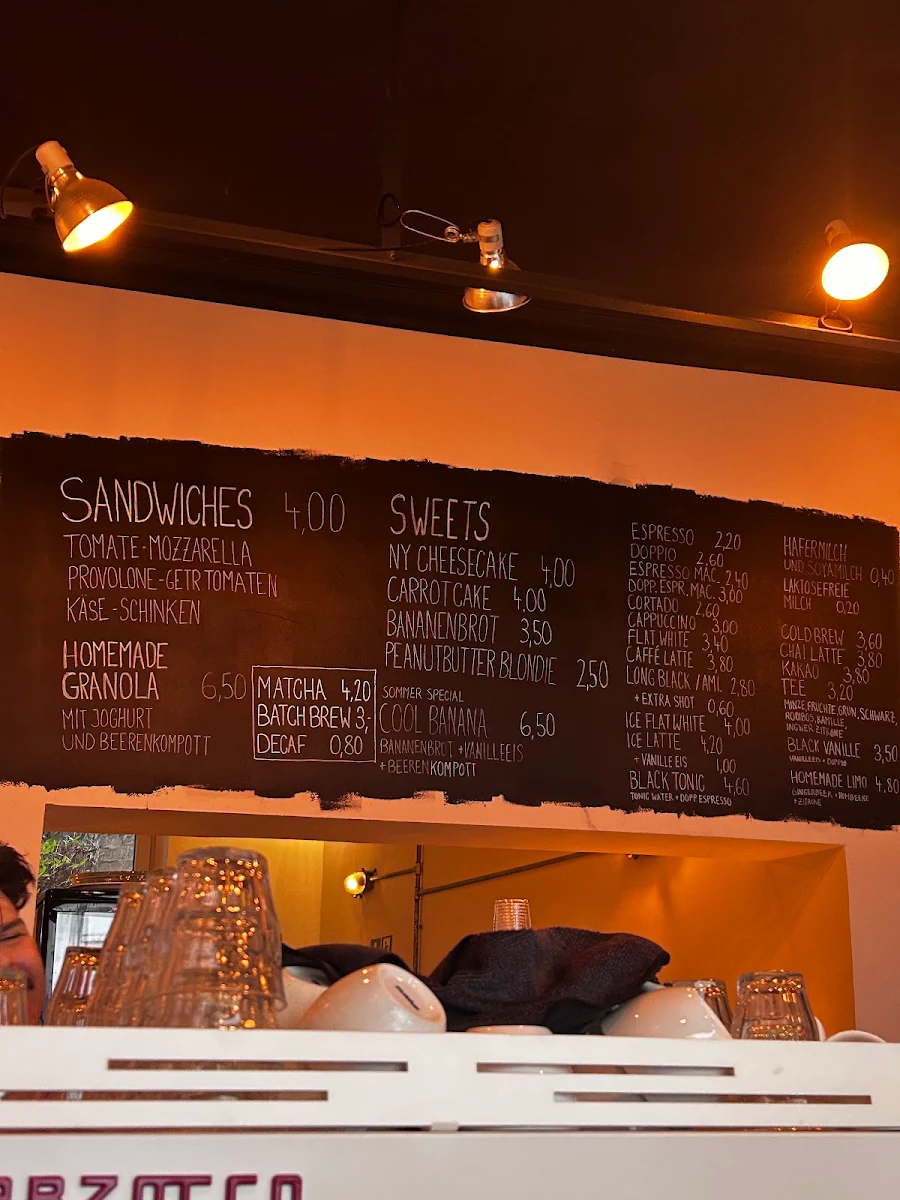 SANDWICHES 4,00
TOMATE-MOZZARELLA
PROVOLONE-GETR TOMATEN
KÄSE-SCHINKEN
HOMEMADE
GRANOLA 6,50
MIT JOGHURT
UND BEERENKOMPOTT
MATCHA 4,20
BATCH BREW 3,-
DECAF 0,80
SWEETS
NY CHEESECAKE 4,00
CARROTCAKE 4,00
BANANENBROT 3,50
PEANUTBUTTER BLONDIE 2,50
SOMMER SPECIAL
COOL BANANA 6,50
BANANENBROT + VANILLEEIS
+ BEERENKOMPOTT
ESPRESSO 2,20
DOPPIO 2,60
ESPRESSO MAC. 2,40
DOPP. ESPR. MAC. 3,00
CORTADO 2,60
CAPPUCCINO 3,00
FLAT WHITE 3,40
CAFFÈ LATTE 3,80
LONG BLACK / AML 2,80
+ EXTRA SHOT 0,60
ICE FLAT WHITE 4,00
ICE LATTE 4,20
+ VANILLE EIS 1,00
BLACK TONIC 4,60
TONIC WATER + DOPP. ESPRESSO
HAFERMILCH
UND SOYAMILCH 0,40
LAKTOSEFREIE
MILCH 0,20
COLD BREW 3,60
CHAI LATTE 3,80
KAKAO 3,80
TEE 3,20
MINZE, FRÜCHTE, GRÜN, SCHWARZ,
ROOIBOS, KAMILLE
INGWER ZITRONE
BLACK VANILLE 3,50
VANILLEEIS + DOPPIO
HOMEMADE LIMO 4,80
GINGERBEER + HIMBEERE
+ ZITRONE
ARZOCCO